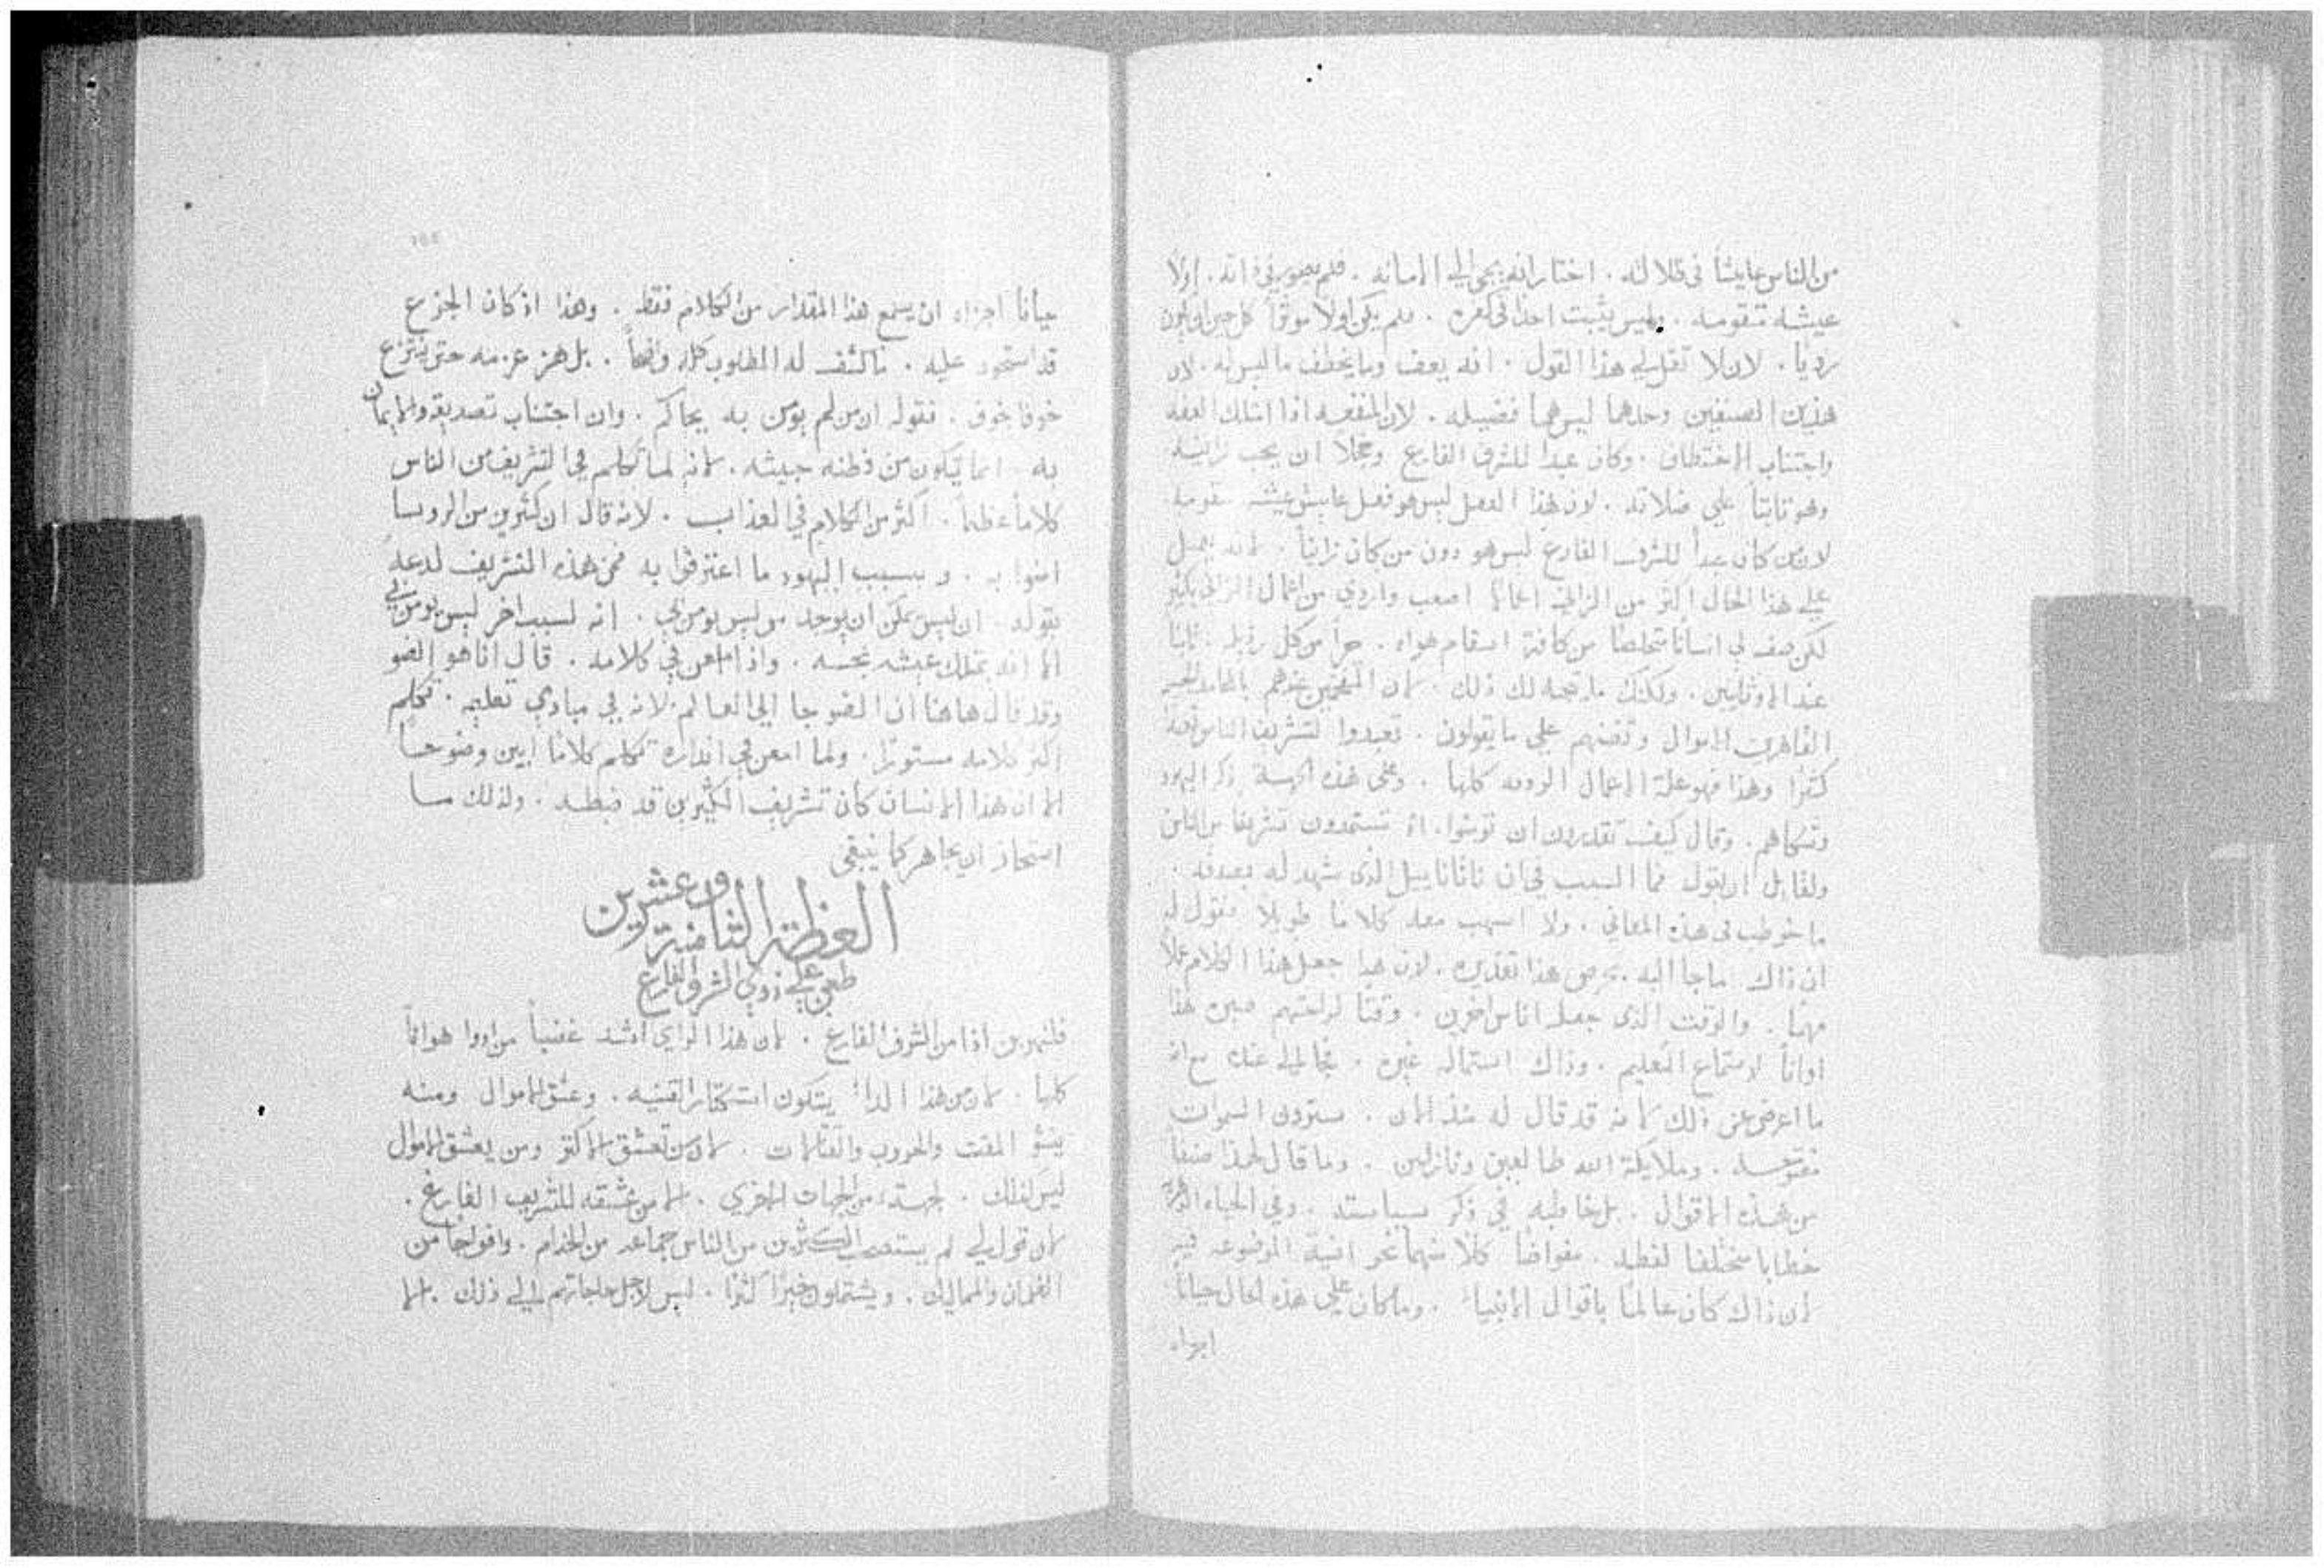 من الناس عايشاً في ضلالته . اختار انه يجي الي الامانه . فلم يصير في ذاته . اولا
عيشه متقومه . وليس يثبت احدا في كفره . فلم يكن اولا موثقاً كل حين ان يكون
رديا . لان لا تقل لي هذا القول . انه يعف وما يخطف ما ليس له . لان
هذين الصنفين وحدهما ليس هما فضيله . لان المنفعه اذا امتلك العفه
واجتناب الاختطاف . وكان عبداً للشرف الفارغ وخجلا ان يحب
وهو ثابتاً علي ضلالته . لان هذا الفعل ليس هو فعل عايش عيشه متقومه
لان من كان عبداً للشرف الفارغ ليس هو دون من كان زانياً . لانه يعمل
علي هذا الحال اكثر من الزاني اعمالا اصعب واردي من اعمال الزاني بكثير
لكن صف لي انسانا متخلصا من كافة اسقام هواه . حراً من كل رذيله . ثابتا
عند الاوثانيين . ولكنك ما يتجه لك ذلك . لان المفتخرين عندهم
القاهرين الاموال وتغضهم علي ما يقولون . تعبدوا لتشريف الناس
كثيرا وهذا فهو علة الاعمال الرديه كلها . وعلي هذه الجهة ذكر اليهود
وشكاهم . وقال كيف تقدرون ان تومنوا . اذ تستمدون تشريفا من الناس
ولقايل ان يقول فما السبب في ان ناثاناييل الذي شهد له بصدقه .
ما خوطب في هذه المعاني . ولا اسهب معه كلاما طويلا فنقول له
ان ذاك ما جا اليه بحرص هذا تقديره . لان هذا جعل هذا الكلام عملا
مهما . والوقت الذي جعله اناس اخرين . وقتا لراحتهم صيره هذا
اواناً لاستماع التعليم . وذاك استماله غيره . فجا الي عنده مع انه
ما اعرض عن ذلك لانه قد قال له منذ الان . سترون السموات
مفتوحه . وملايكة الله طالعين ونازلين . وما قال لهذا صنفاً
من هذه الاقوال . بل خاطبه في ذكر سياسته . وفي الحياه الدهريه
خطابا مختلفا لفظه . مفاوضا كلا منهما نحو النية الموضوعه فيه
لان ذاك كان عالما باقوال الانبياء . وما كان علي هذه الحال جباناً
اجزاه
166
جباناً اجزاه ان يسمع هذا المقدار من الكلام فقط . وهذا اذ كان الجزع
قد استحوذ عليه . ما كشف له المطلوب كله واضحاً . بل هز عزمه حتى ينتزع
خوفا بخوف . فقوله ان من لم يومن به يحاكم . وان اجتناب تصديقه والايمان
به انما يتكون من فطنه خبيثه . لانه لما تكلم في التشريف من الناس
كلاماً عظيماً . اكثر من الكلام في العذاب . لانه قال ان كثيرين من الروسا
امنوا به . وبسبب اليهود ما اعترفوا به فمن هذه التشريف لدعه
بقوله . ان ليس يمكن ان يوجد من ليس يومن بي . انه لسبب اخر ليس يومن بي
الا انه يملك عيشه نجسه . واذ امعن في كلامه . قال انا هو الضو
وقد قال هاهنا ان الضو جا الي العالم . لانه في مبادي تعليمه . تكلم
اكثر كلامه مستورا . ولما امعن في انذاره تكلم كلاما ابين وضوحاً
الا ان هذا الانسان كان تشريف الكثيرين قد ضبطه . ولذلك ما
استحاز ان يجاهر كما ينبغي
العظة الثامنة وعشرين
طعن علي ذوي الشرف الفارغ
فلنهربن اذا من الشرف الفارغ . لان هذا الراي اشد غضباً من ادوا هواناً
كلها . لان من هذا الداء يتكون استكثار القنيه . وعشق الاموال ومنه
ينشو المقت والحروب والقتالات . لان من تعشق الاكثر ومن يعشق الاموال
ليس لذلك . لجهة من الجهات الاخري . الا من عشقه للتشريف الفارغ .
لان قولي لي لم يستصحب الكثيرين من الناس جماعه من الخدام . وافواجاً من
الغلمان والمماليك . ويشتملون خيراً كثيرا . ليس لاجل حاجاتهم الي ذلك . الا